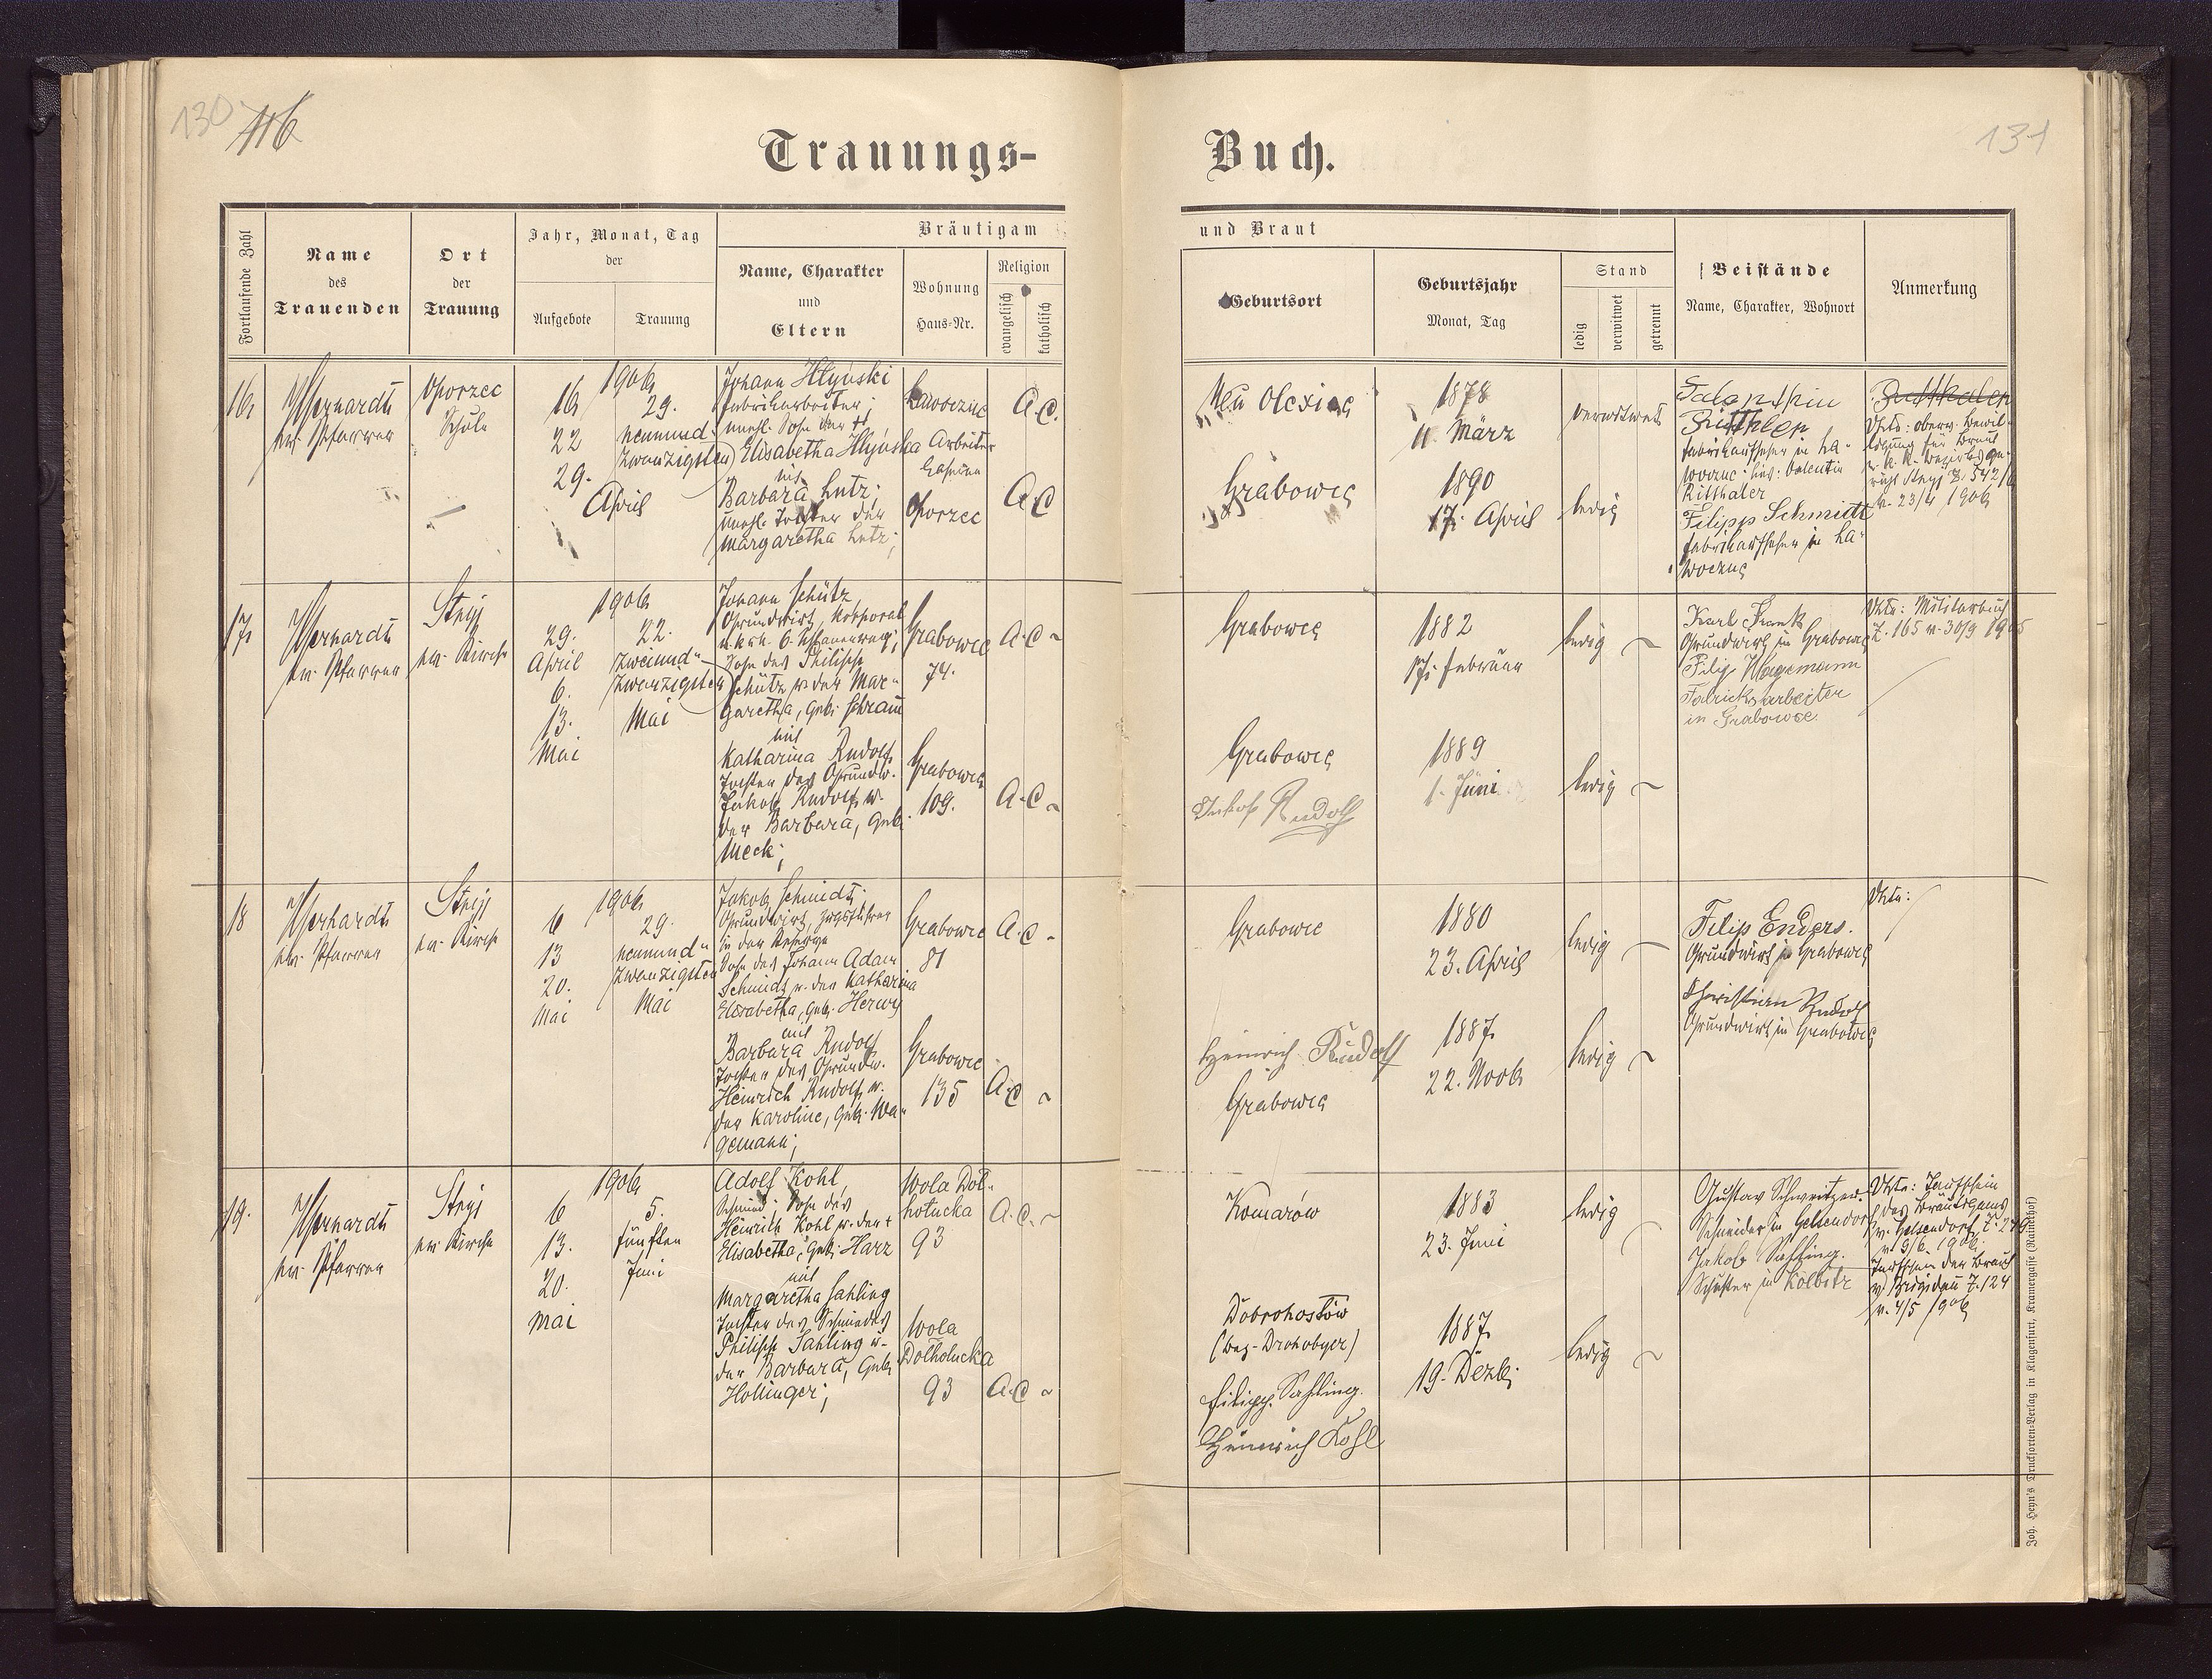 130
116
Trauungs-
Buch.
131
Fortlaufende Zahl
Name
des
Trauenden
Ort
der
Trauung
Jahr, Monat, Tag
der
Aufgebote
Trauung
Bräutigam
Name, Charakter
und
Eltern
Wohnung
Haus-Nr.
Religion
evangelisch
katholisch
und Braut
Geburtsort
Geburtsjahr
Monat, Tag
Stand
ledig
verwitwet
getrennt
Beistände
Name, Charakter, Wohnort
Anmerkung
16
ev. Pfarrer
Oporzec
Schule
1906
16
22
29.
April
29.
neunund-
zwanzigsten
Johann Hlynski
Fabriksarbeiter;
unehl. Sohn der †
Elisabetha Hlynska
mit
Barbara Lutz;
unehl. Tochter der
Margaretha Lutz;
Arbeiter
Oporzec
A.C.
A.C
Neu Olexice
Grabowce
1878
11. März
1890
17. April
verwitwet
ledig
Filipp Schmidt
Fabriksaufseher in La-
woczne
v. 23/4 1906
17
ev. Pfarrer
Stryj
ev. Kirche
1906
29.
April
6.
13.
Mai
22.
zweiund-
zwanzigsten
Mai
Johann Schütz
Grundwirt, Korporal
Sohn des Philipp
Schütz u. der Mar-
garetha, geb. Schram
mit
Katharina Rudolf,
Tochter des Grundw.
Jakob Rudolf u.
der Barbara, geb.
Meck;
Grabowce
74.
Grabowce
109.
A.C
A.C
Grabowce
Grabowce
Jakob Rudolf
1882
17. Februar
1889
1. Juni
ledig
ledig
Karl Frank
Grundwirt in Grabowce
Filip Wagemann
Fabricksarbeiter
in Grabowce.
Z. 165 v. 30/9 1905
18
ev. Pfarrer
Stryj
ev. Kirche
1906
6
13
20.
Mai
29.
neunund-
zwanzigsten
Mai
Jakob Schmidt;
Grundwirt, Zugsführer
in der Reserve
Sohn des Johann Adam
Schmidt u. der Katharina
Elisabetha, geb. Herwy
mit
Barbara Rudolf
Tochter des Grundw.
Heinrich Rudolf u.
der Karoline, geb. Wa-
gemann;
Grabowce
81
Grabowce
135
A.C
A.C
Grabowce
Heinrich Rudolf
Grabowce
1880
23. April
1887
22. Novb
ledig
ledig
Filip Enders.
Grundwirt in Grabowce
Christian Rudolf
Grundwirt in Grabowce
19.
ev. Pfarrer
Stryj
ev. Kirche
1906
6
13.
20.
Mai
5.
fünften
Juni
Adolf Kohl,
Schmied Sohn des
Heinrich Kohl u. der †
Elisabetha, geb. Harz
mit
Margaretha Sahling
Tochter des Schmiedes
Philipp Sahling u.
der Barbara, geb.
Hollinger;
Wola Dol-
holucka
93
Wola
Dolholucka
93
A.C.
A.C
Komarów
Dobrohostów
(Bez. Drohobycz)
Filipp Sahling.
Heinrich Kohl
1883
23. Juni
1887
19. Dezb.
ledig
ledig
Gustav Schweitzer
Schneider in Gelsendorf
Jakob Sahling.
Schuster in
Taufschein
des Bräutigams
v. Gelsendorf
Taufschein der Braut
v. Brigidau Z. 124
v. 4/5 1906
Joh. Heyn's Drucksorten-Verlag in Klagenfurt, Kramergasse (Rainerhof)